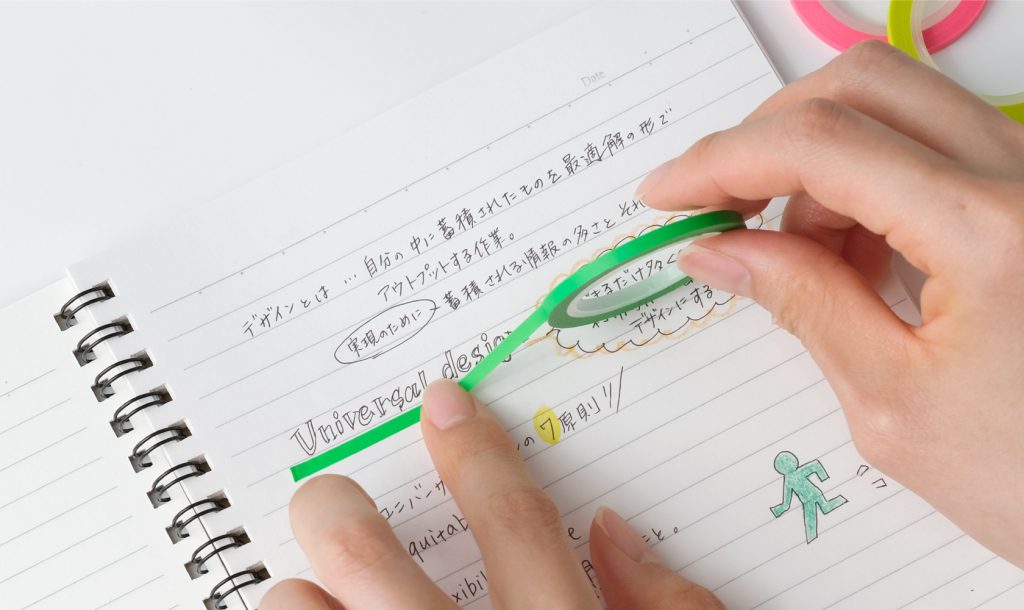 Date
デザインとは … 自分の中に蓄積されたものを最適解の形で
アウトプットする作業。
実現のために 蓄積される情報の多さと それ
できるだけ多く
デザインにする
Universal desig
の 7 原則!!
ユニバーサ
quitab e こと。
xibil